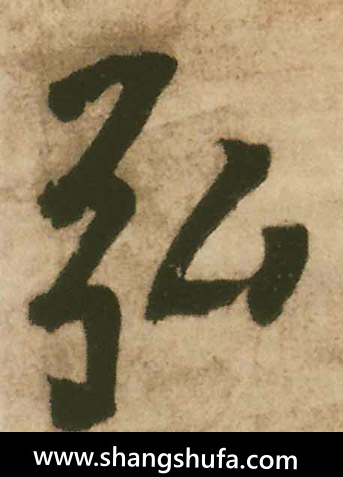 弘
www.shangshufa.com